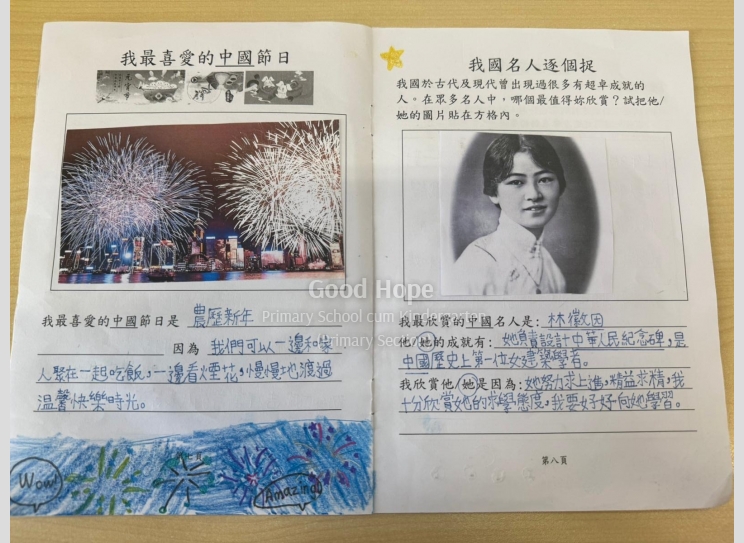 我最喜愛的中國節日
我最喜愛的中國節日是 農歷新年
因為 我們可以一邊和家
人聚在一起吃飯，一邊看煙花，慢慢地渡過
溫馨快樂時光。
Wow!
Amazing!
我國名人逐個捉
我國於古代及現代曾出現過很多有超卓成就的
人。在眾多名人中，哪個最值得妳欣賞？試把他/
她的圖片貼在方格內。
我最欣賞的中國名人是: 林徽因
他/她的成就有: 她負責設計中華人民紀念碑，是
中國歷史上第一位女建築學者。
我欣賞他/她是因為: 她努力求上進，精益求精，我
十分欣賞她的求學態度，我要好好向她學習。
第八頁
Good Hope
Primary School cum Kindergarten
Primary Section